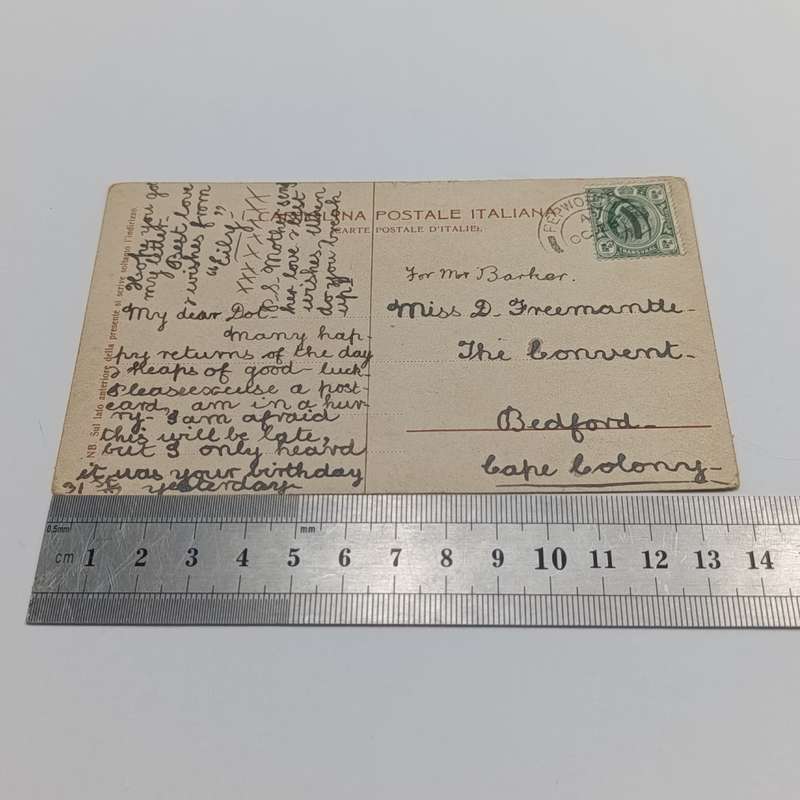 CARTOLINA POSTALE ITALIANA
(CARTE POSTALE D'ITALIE)
NB Sul lato anteriore della presente si scrive soltanto l'indirizzo.
My dear Dot-
Many hap-
py returns of the day
& heaps of good-luck.
Please excuse a post-
card, am in a hur-
ry. I am afraid
this will be late,
but I only heard
it was your birthday
yesterday-
31
Hope you got
my letter.
Best love
& wishes from
"Lily"
XXXXXXX
P.S. Mother send
her love & best
wishes, When
do you break
up!
For Mr Barker.
Miss D. Freemantle-
The Convent-
Bedford-
Cape Colony-
TRANSVAAL
0.5mm
mm
cm 1 2 3 4 5 6 7 8 9 10 11 12 13 14